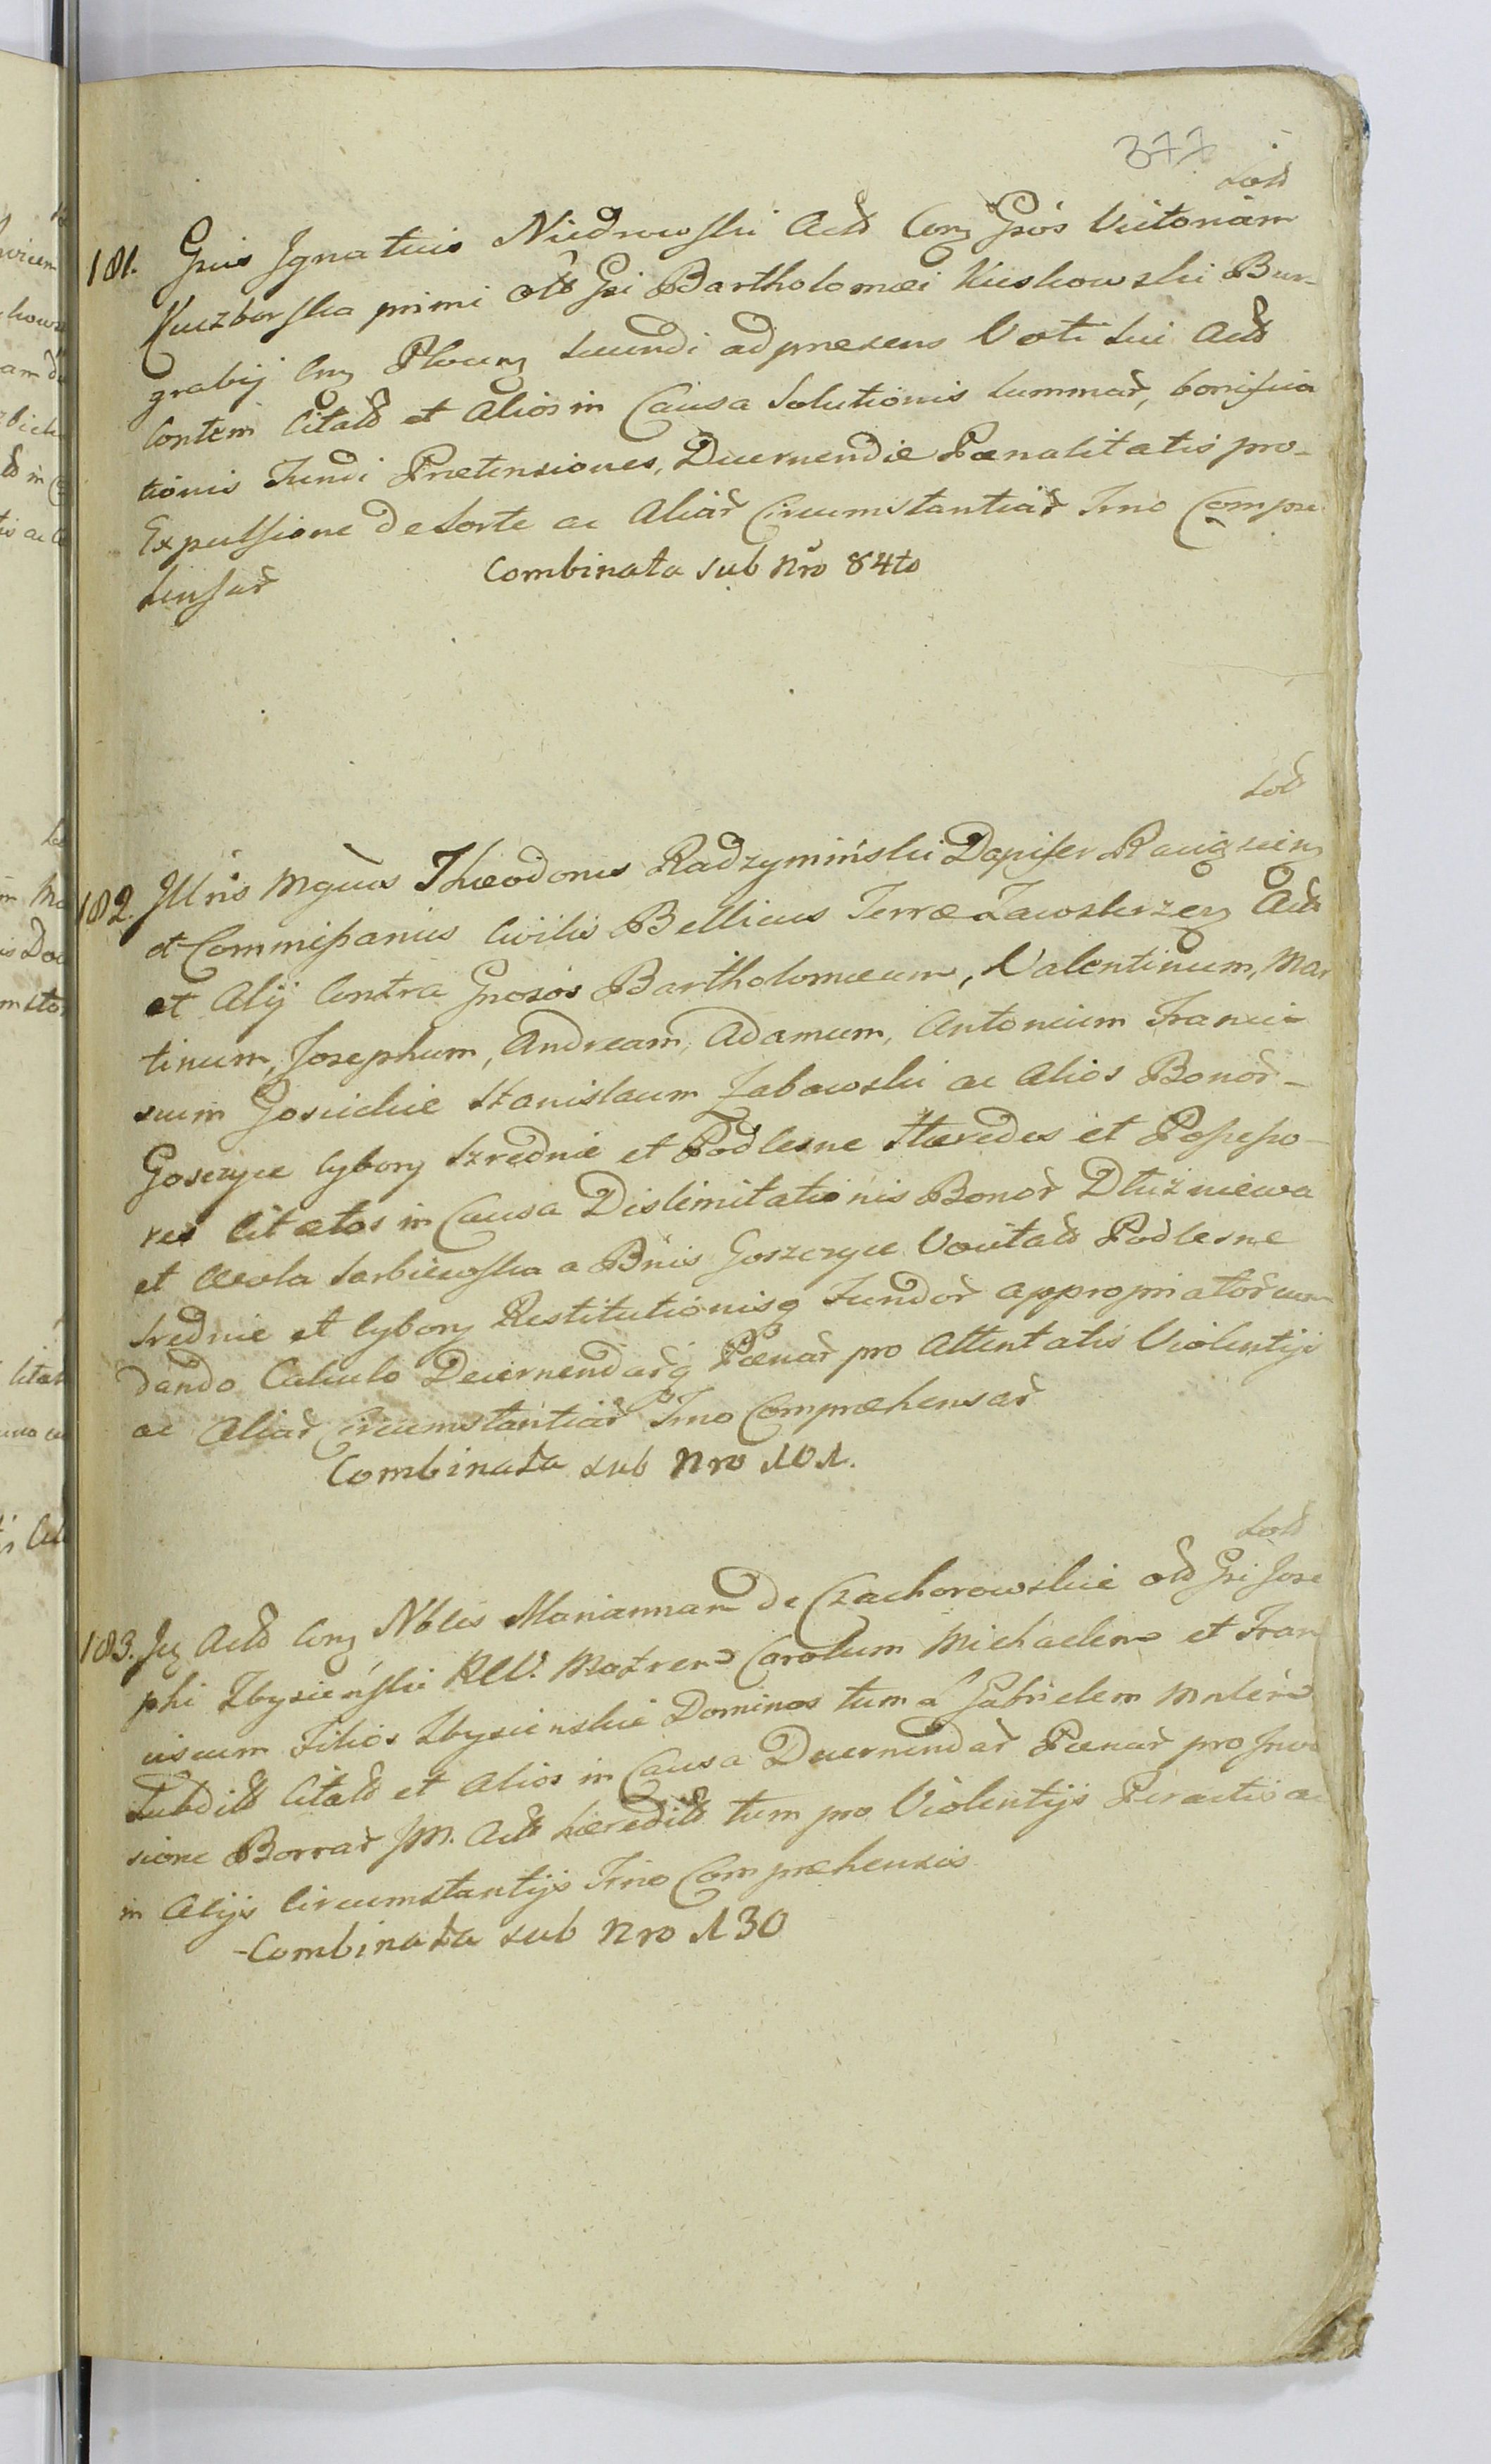 377
Lod
181. Gsus Ignatius Niedrowski Actor Con Gsos Victoriam
Kuczborska primi olim Gsi Bartholomæi Kuskowski Bur-
grabij Cny Plocen secundi ad præsens Voti sui Actor
Contem Citatos et Alios in Causa Solutionis Summar, bonifica
tionis Fundi Prætensiones, Decernendæ Pœnalitatis pro-
Expulsione de Sorte ac Aliar Circumstantiar Imo Compre
hensar
Combinata sub Nro 84to
Lod
182. Illris Mgcus Theodorus Radzyminski Dapifer
et Commissarius Civilis Bellicus Terræ Zawskrzen Actor
et Alij Contra Gnosos Bartholomæum, Valentinum, Mar
tinum, Josephum, Andream, Adamum, Antonium Franci-
scum Gosiickie Stanislaum Zabowski ac Alios Bonor-
Goszczyce Cybory Szrednie et Podlesne Hæredes et Possesso-
res Citatos in Causa Dislimitationis Bonor Dłużniewa
et Wola Sarbiewska a Bnis Goszczyce Vocitatis Podlesne
Srednie et Cybory Restitutionisq Fundor appropriatorum
dando Calculo Decernendarq Pœnar pro Attentatis Violentijs
ac Aliar Circumstantiar Imo Compræhensar
Combinata sub Nro 101.
Lod
183. Actor Con Nbles Mariannam de Czachorowskie olim Gsi Jose
phi Zbysienskie Matrem Carolum Michaelem et Fran
ciscum Filios Zbysienskie Dominos tum Gabrielem
Subditos Citatos et Alios in Causa Decernendar Pœnar pro
sione Borrar Actor hæredit tum pro Violentijs Peractis ac
in Alijs Circumstantijs Imo Compræhensis
-Combinata sub Nro 130